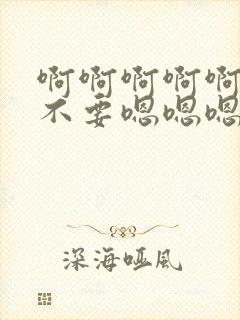 啊啊啊啊啊
不要嗯嗯嗯
深海哑风